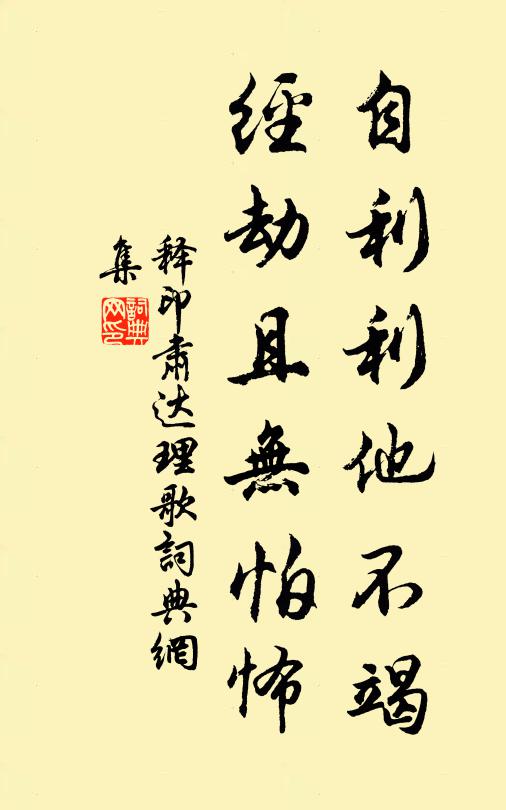 自利利他不竭
經劫且無怕怖
释印肃达理歌詞典網
集
詞典網印